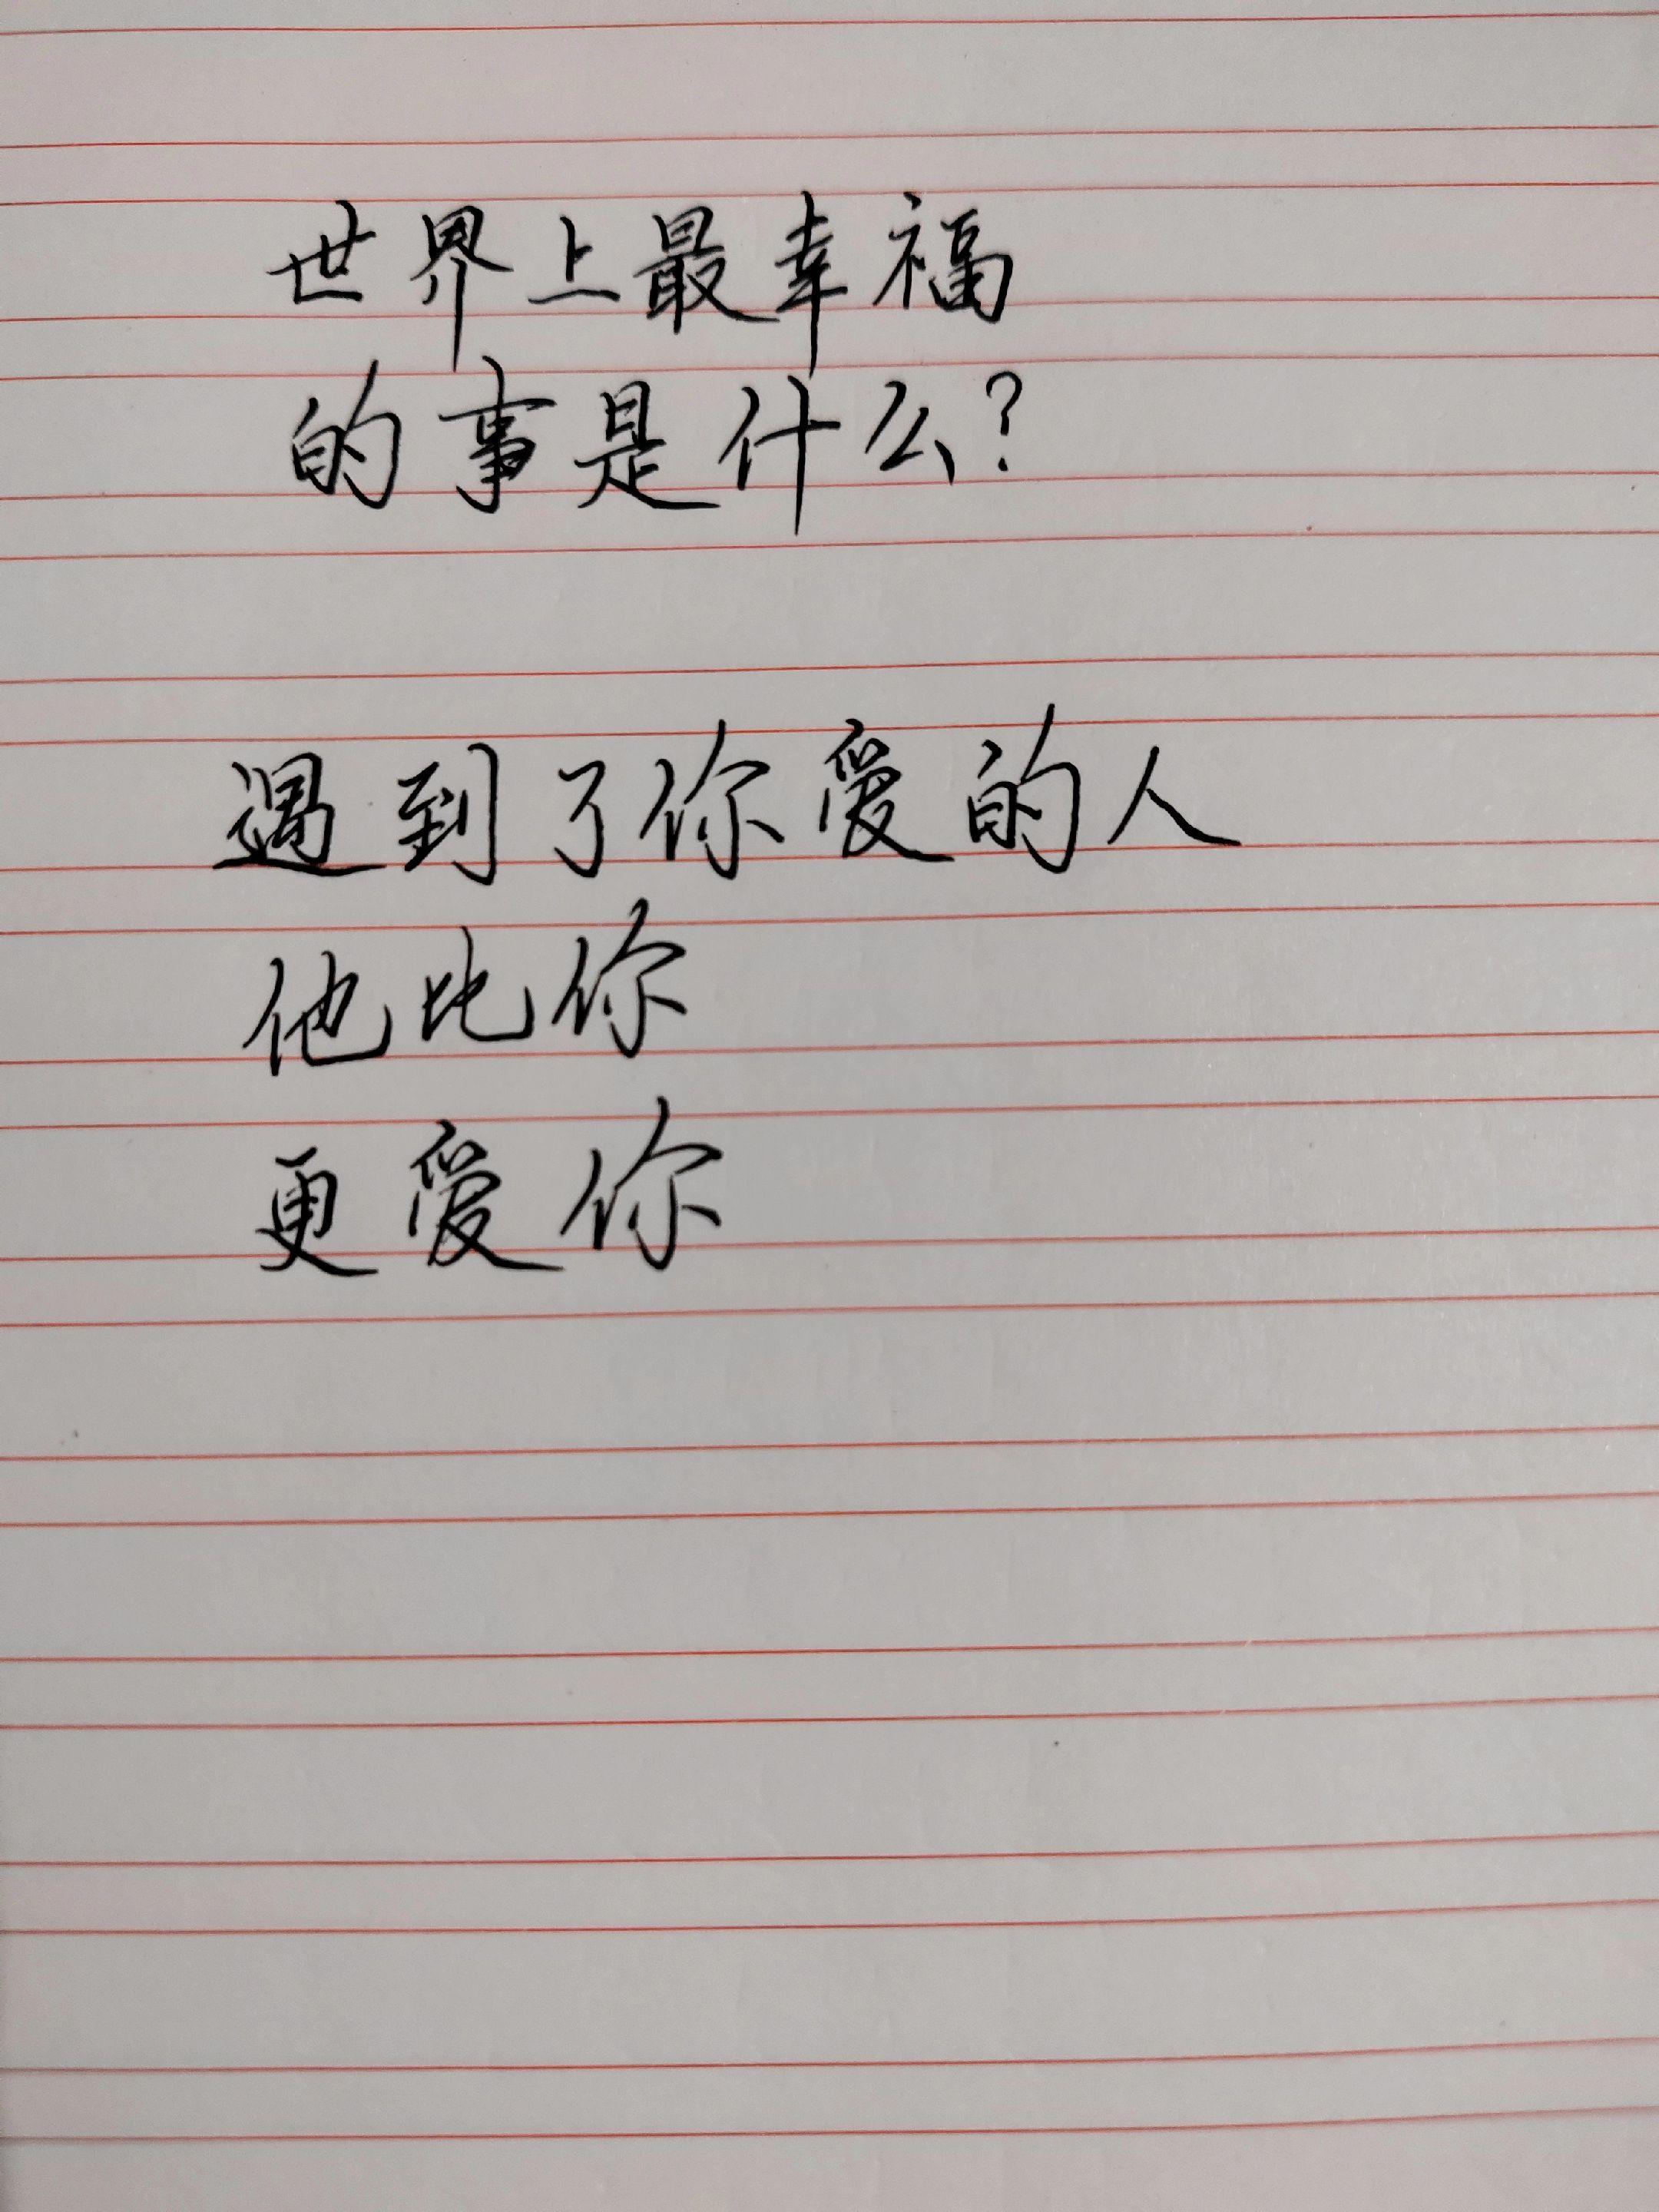 世界上最幸福
的事是什么?
遇到了你爱的人
他比你
更爱你